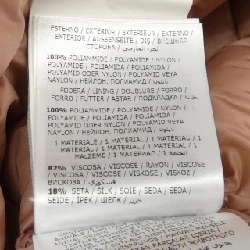 ESTERNO / EXTERIOR / EXTERIEUR / EXTERNO /
EXTERIOR / AUSSENSEITE / DIŞ /
СТОРОНА /
100% POLIAMMIDE / POLYAMIDE / NYLON /
POLYAMIDE / POLIAMIDA / POLIAMIDA /
POLYAMID ODER NYLON / POLYAMID VEYA
NAYLON / НЕЙЛОН, ПОЛИАМИД /
FODERA / LINING / DOUBLURE / FORRO /
FORRO / FUTTER / ASTAR / ПОДКЛАДКА /
100% POLIAMMIDE / POLYAMIDE / NYLON /
POLYAMIDE / POLIAMIDA / POLIAMIDA /
POLYAMID ODER NYLON / POLYAMID VEYA
NAYLON / НЕЙЛОН, ПОЛИАМИД /
1 MATERIALE / 1 MATERIAL / 1
1 MATERIAL / 1 MATERIAL / 1
MALZEME / 1 МАТЕРИАЛ /
82% VISCOSA / VISCOSE / RAYON / VISCOSE
/ VISCOSA / VISCOSE / VISKOSE / VISKOZ /
ВИСКОЗА /
18% SETA / SILK / SOIE / SEDA / SEDA /
SEIDE / İPEK / ШЕЛК / حرير